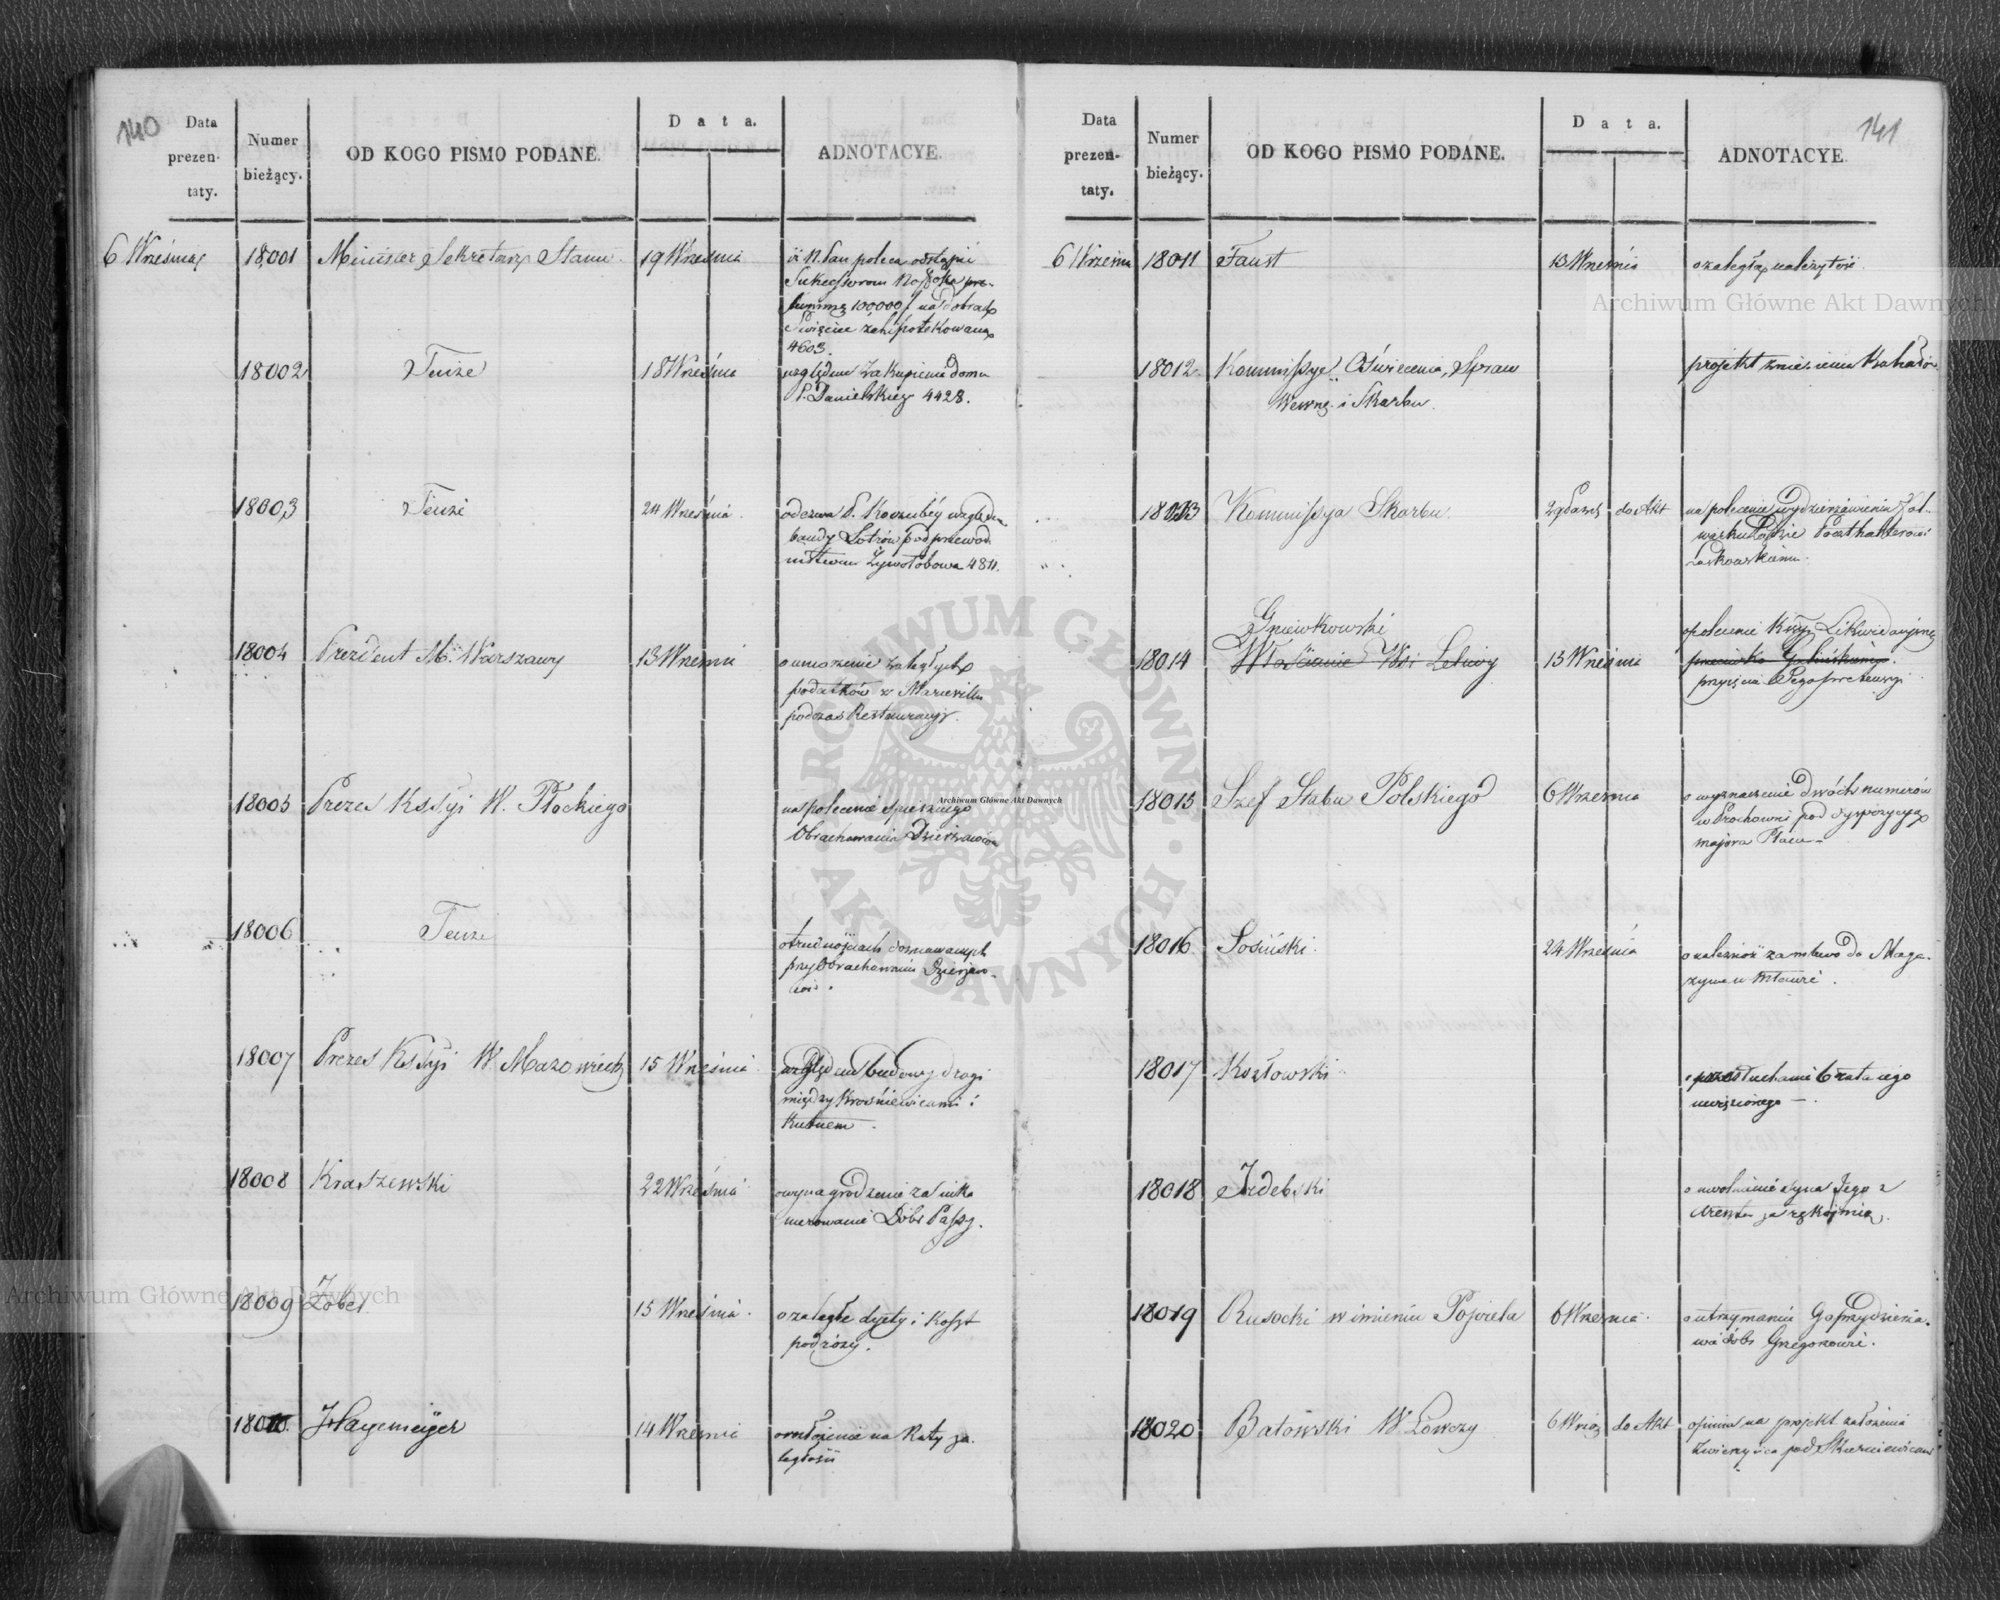 140
Data
prezen-
taty.
Numer
bieżący.
OD KOGO PISMO PODANE.
Data.
ADNOTACYE.
6 Wrześnią
18,001
Minister Sekretarz Stanu
19 Września
iż N. Pan poleca odstąpić
Sukcessorom
summę 100,000 f na dobrach
zahipotekowaną
4603.
18002
Tenże
18 Września
względem zakupienia domu
P. Danielskiey 4428.
18003
Tenże
24 Września
odezwa P. Koczubéy względem
bandy Łotrów pod przewod-
nictwem Żywotobowa 4811.
18004
Prezdent M. Warszawy
13 Wrzesnia
o umorzenie zaległych
podatków z Marievillu
podczas Restauracyi.
18005
Prezes Kssyi W. Płockiego
na polecenie spiesznego
Obrachowania Dzierżawców
18006
Tenże
o trudnościach doznawanych
przy Obrachowaniu Dzierżaw-
ców.
18007
Prezes Kssyi W. Mazowieck
15 Września
względem budowy drogi
między Krośniewicami i
Kutnem.
18008
Kraszewski
22 Września
o wynagrodzenie za inka
merowanie Dóbr
18009
Zobel
15 Września
o zaległe dyety i koszt
podróży.
18010.
Hagemeÿer
14 Wrzesnia
o rozłożenie na Raty za-
ległości
141
Data
prezen-
taty.
Numer
bieżący.
OD KOGO PISMO PODANE.
Data.
ADNOTACYE.
6 Września
18011
Faust
13 Września
o zaległą należytość
18012
Kommissye Oświecenia, Spraw
Wewnę. i Skarbu.
projekt zniesienia Kahałów
18013
Kommissya Skarbu.
do Akt
na polecenie wydzierżawienia Fol-
warku Poczthalterowi
Laskowskiemu.
Gniewkowski
18014
Włościanie Wsi
13 Września
o polecenie Kssyi Likwidacyjnej
przyięcia Jego pretensyi
18015
Szef Sztabu Polskiego
6 Wrzesnia
o wyznaczenie dwóch numerów
w Prochowni pod dyspozycyą
majora Placu-
18016
Sosiński.
24 Września
o należność za mlewo do Maga-
zynu
18017
Kozłowski
o przesłuchanie brata iego
uwięzionego —.
18018
Jedelski
o uwolnienie syna Jego z
Aresztu za rękojmią.
18019
Rusocki w imieniu
6 Wrzesnia
o utrzymaniu Go przy dzierża-
wie dóbr Grzegorzewic.
18020
Batowski W. Łowczy
6 Wrześ
do Akt
opinia na projekt założenia
Zwierzyńca pod Skierniewicami
Archiwum Główne Akt Dawnych
Archiwum Główne Akt Dawnych
Archiwum Główne Akt Dawnych
ARCHIWUM GŁÓWNE AKT DAWNYCH